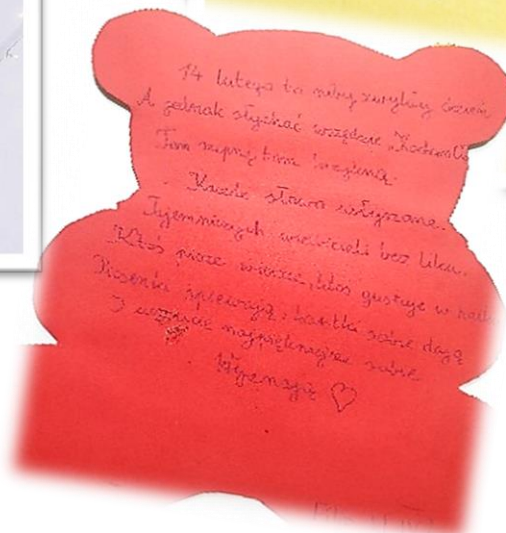 14 lutego to niby zwykły dzień
A jednak słychać wszędzie „Kocham Cię
Tam mijną tam
Każde słowo usłyszane.
Tajemniczych wielbicieli bez liku.
Ktoś pisze wiersze, ktoś gustuje w
Piosenki śpiewają, kartki sobie dają
I uczucie najpiękniejsze sobie
Wyznają ♡